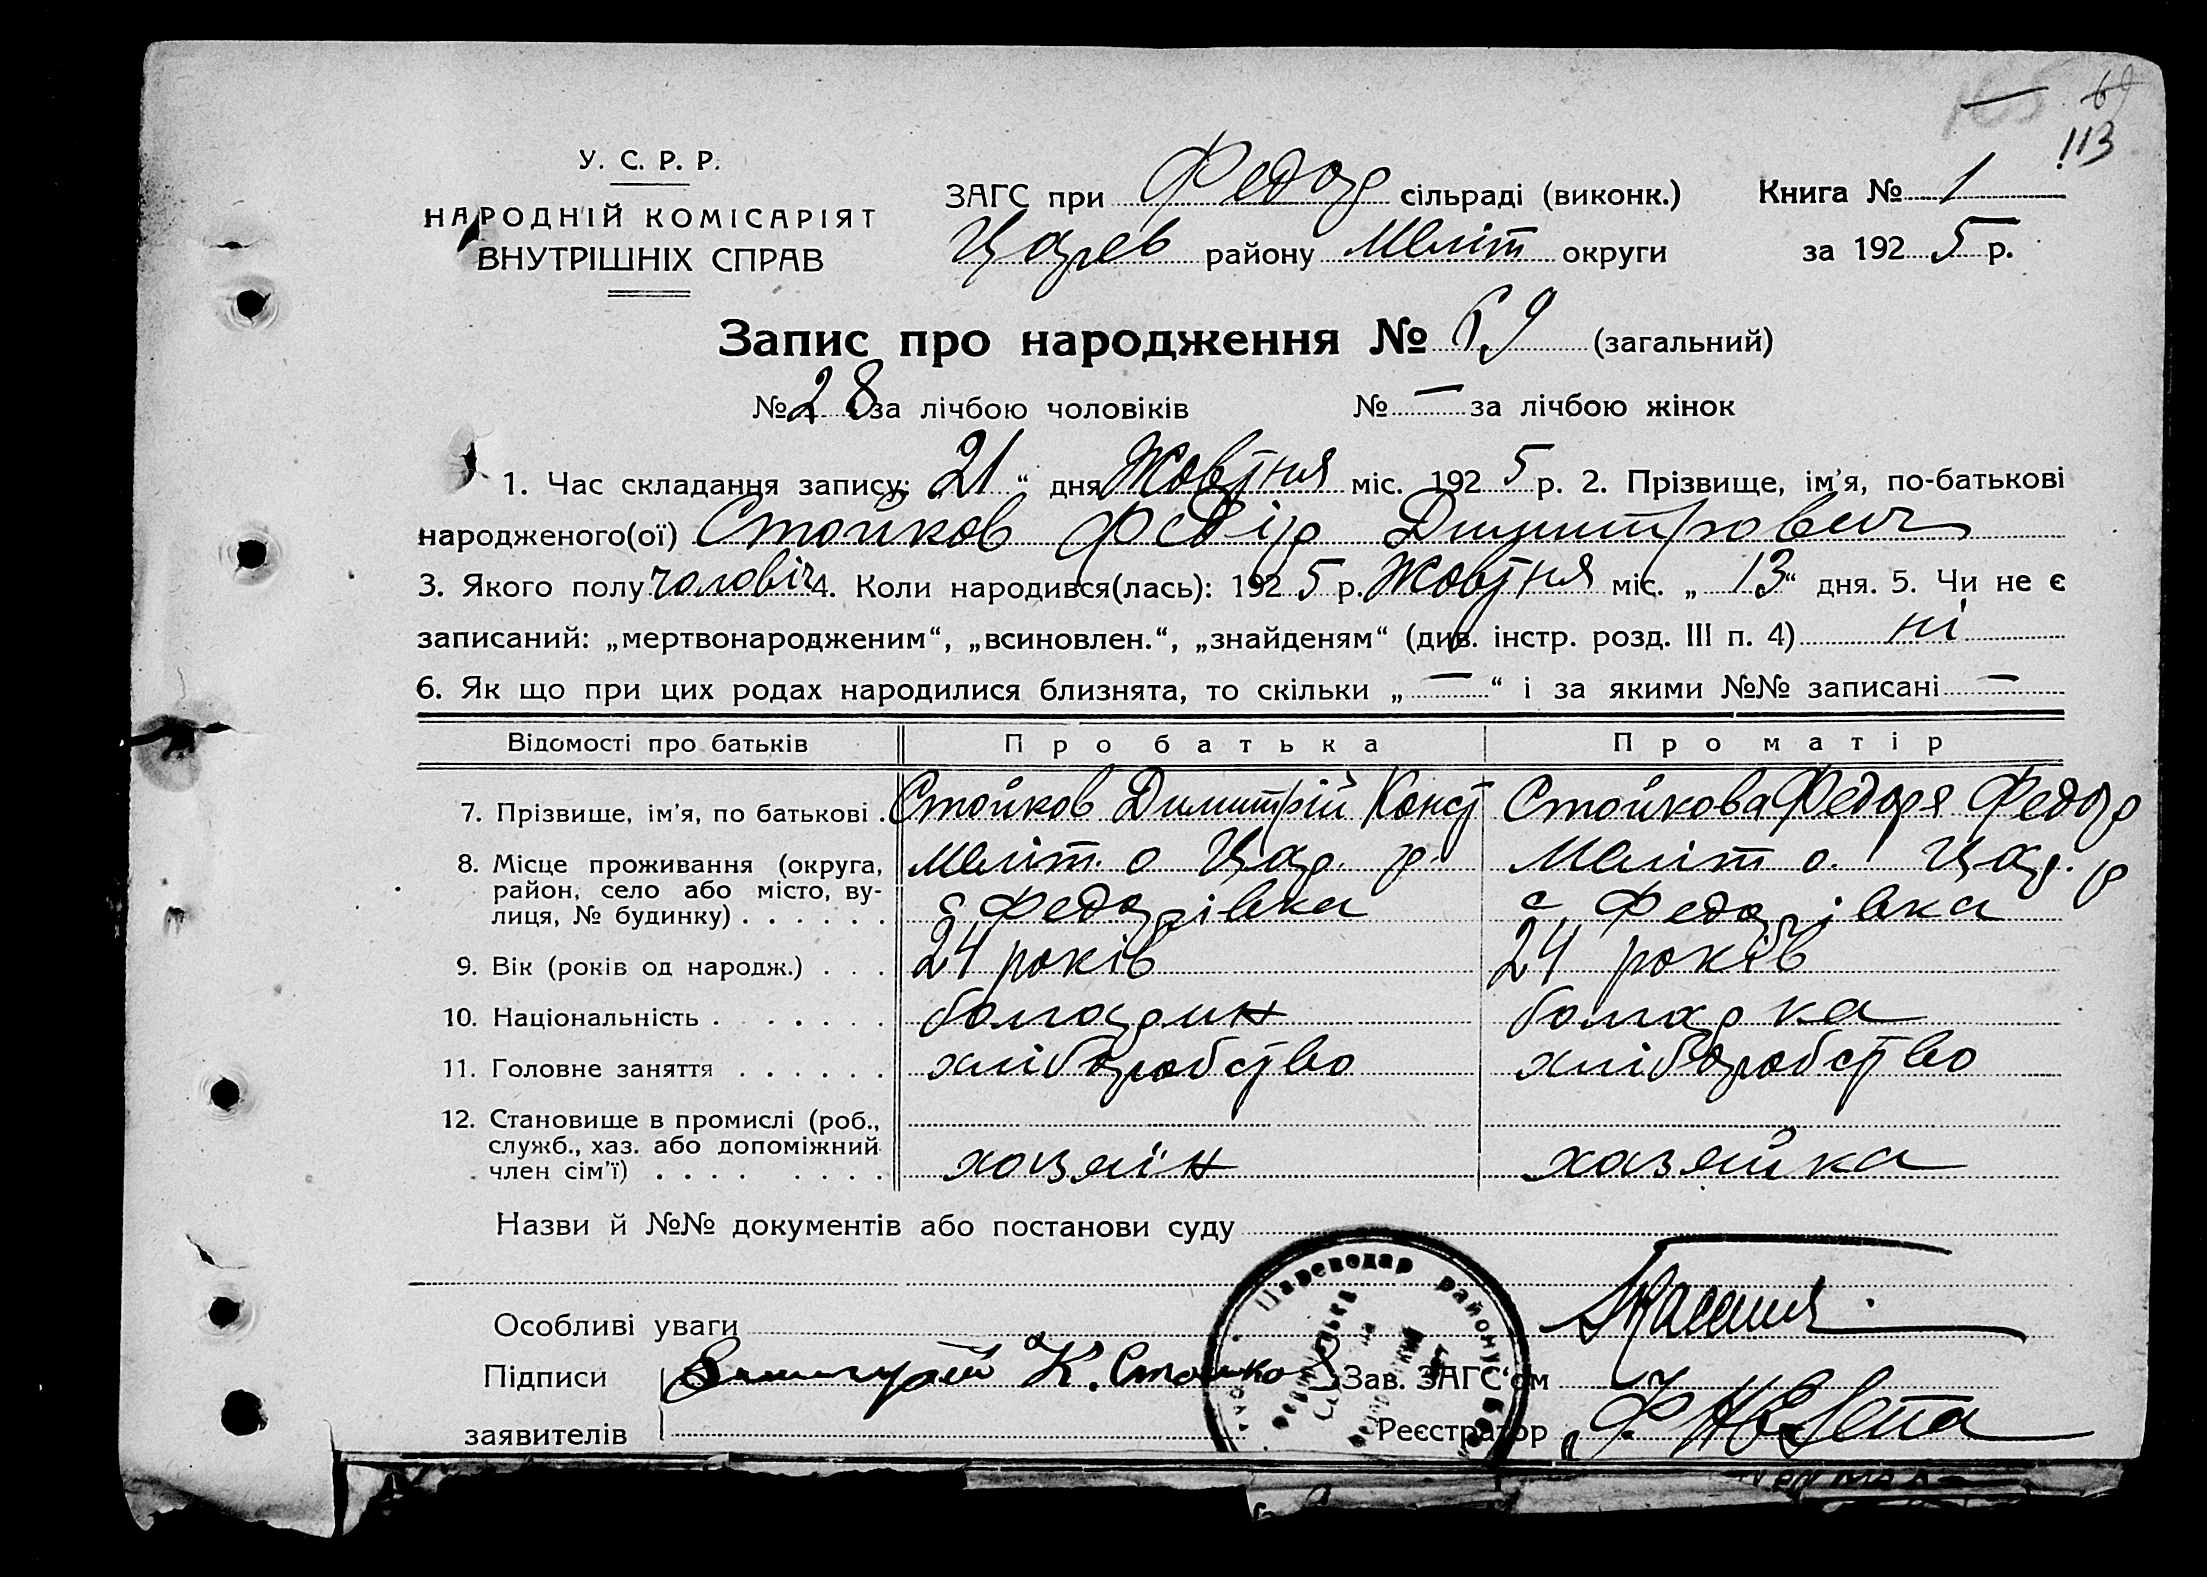 113
У. С. Р. Р.
НАРОДНІЙ КОМІСАРІЯТ
ВНУТРІШНІХ СПРАВ
ЗАГС при Федор сільраді (виконк.) Книга № 1
Царев району Меліт округи за 1925 р.
Запис про народження № 69 (загальний)
№ 28 за лічбою чоловіків № — за лічбою жінок
1. Час складання запису: „21“ дня Жовтня міс. 1925 р. 2. Прізвище, ім’я, по-батькові
народженого(ої) Стойков Федір Димитрович
3. Якого полу чоловіч 4. Коли народився(лась): 1925 р. Жовтня міс. „13“ дня. 5. Чи не є
записаний: „мертвонародженим“, „всиновлен.“, „знайденям“ (див. інстр. розд. III п. 4) ні
6. Як що при цих родах народилися близнята, то скільки „—“ і за якими №№ записані —
Відомості про батьків Про батька Про матір
7. Прізвище, ім’я, по батькові . Стойков Димитрій Конст Стойкова Федоря Федор
8. Місце проживання (округа, Меліт. о Цар. р. Меліт о. Цар. р
район, село або місто, ву-
лиця, № будинку) . . . . . . с Федорівка с Федорівка
9. Вік (років од народж.) . . . 24 років 24 років
10. Національність . . . . . . болгарин болгарка
11. Головне заняття . . . . . . хліборобство хліборобство
12. Становище в промислі (роб.,
служб., хаз. або допоміжний
член сім’ї) . . . . . . . . хозяїн хазяйка
Назви й №№ документів або постанови суду
Цареводар району
Особливі уваги
Підписи К. Стойков Зав. ЗАГС‘ом
заявителів Реєстратор Ф.